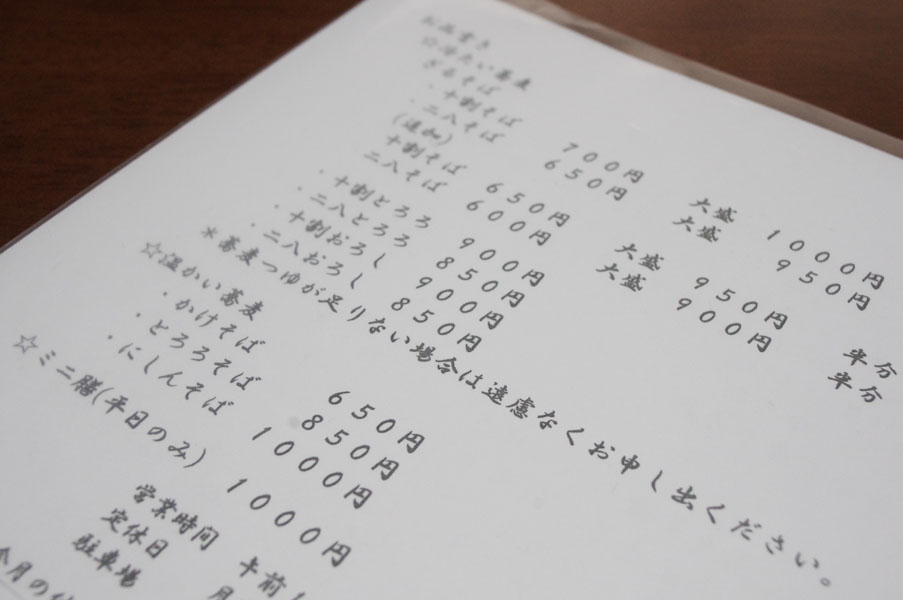 お品書き
☆冷たい蕎麦
ざるそば
・十割そば 700円 大盛 1000円
・二八そば 650円 大盛 950円
(追加)
十割そば 650円 大盛 950円 半分
二八そば 600円 大盛 900円 半分
・十割とろろ 900円
・二八とろろ 850円
・十割おろし 900円
・二八おろし 850円
*蕎麦つゆが足りない場合は遠慮なくお申し出ください。
☆温かい蕎麦
・かけそば 650円
・とろろそば 850円
・にしんそば 1000円
☆ミニ膳(平日のみ) 1000円
営業時間 午前
定休日 月
駐車場
今月の